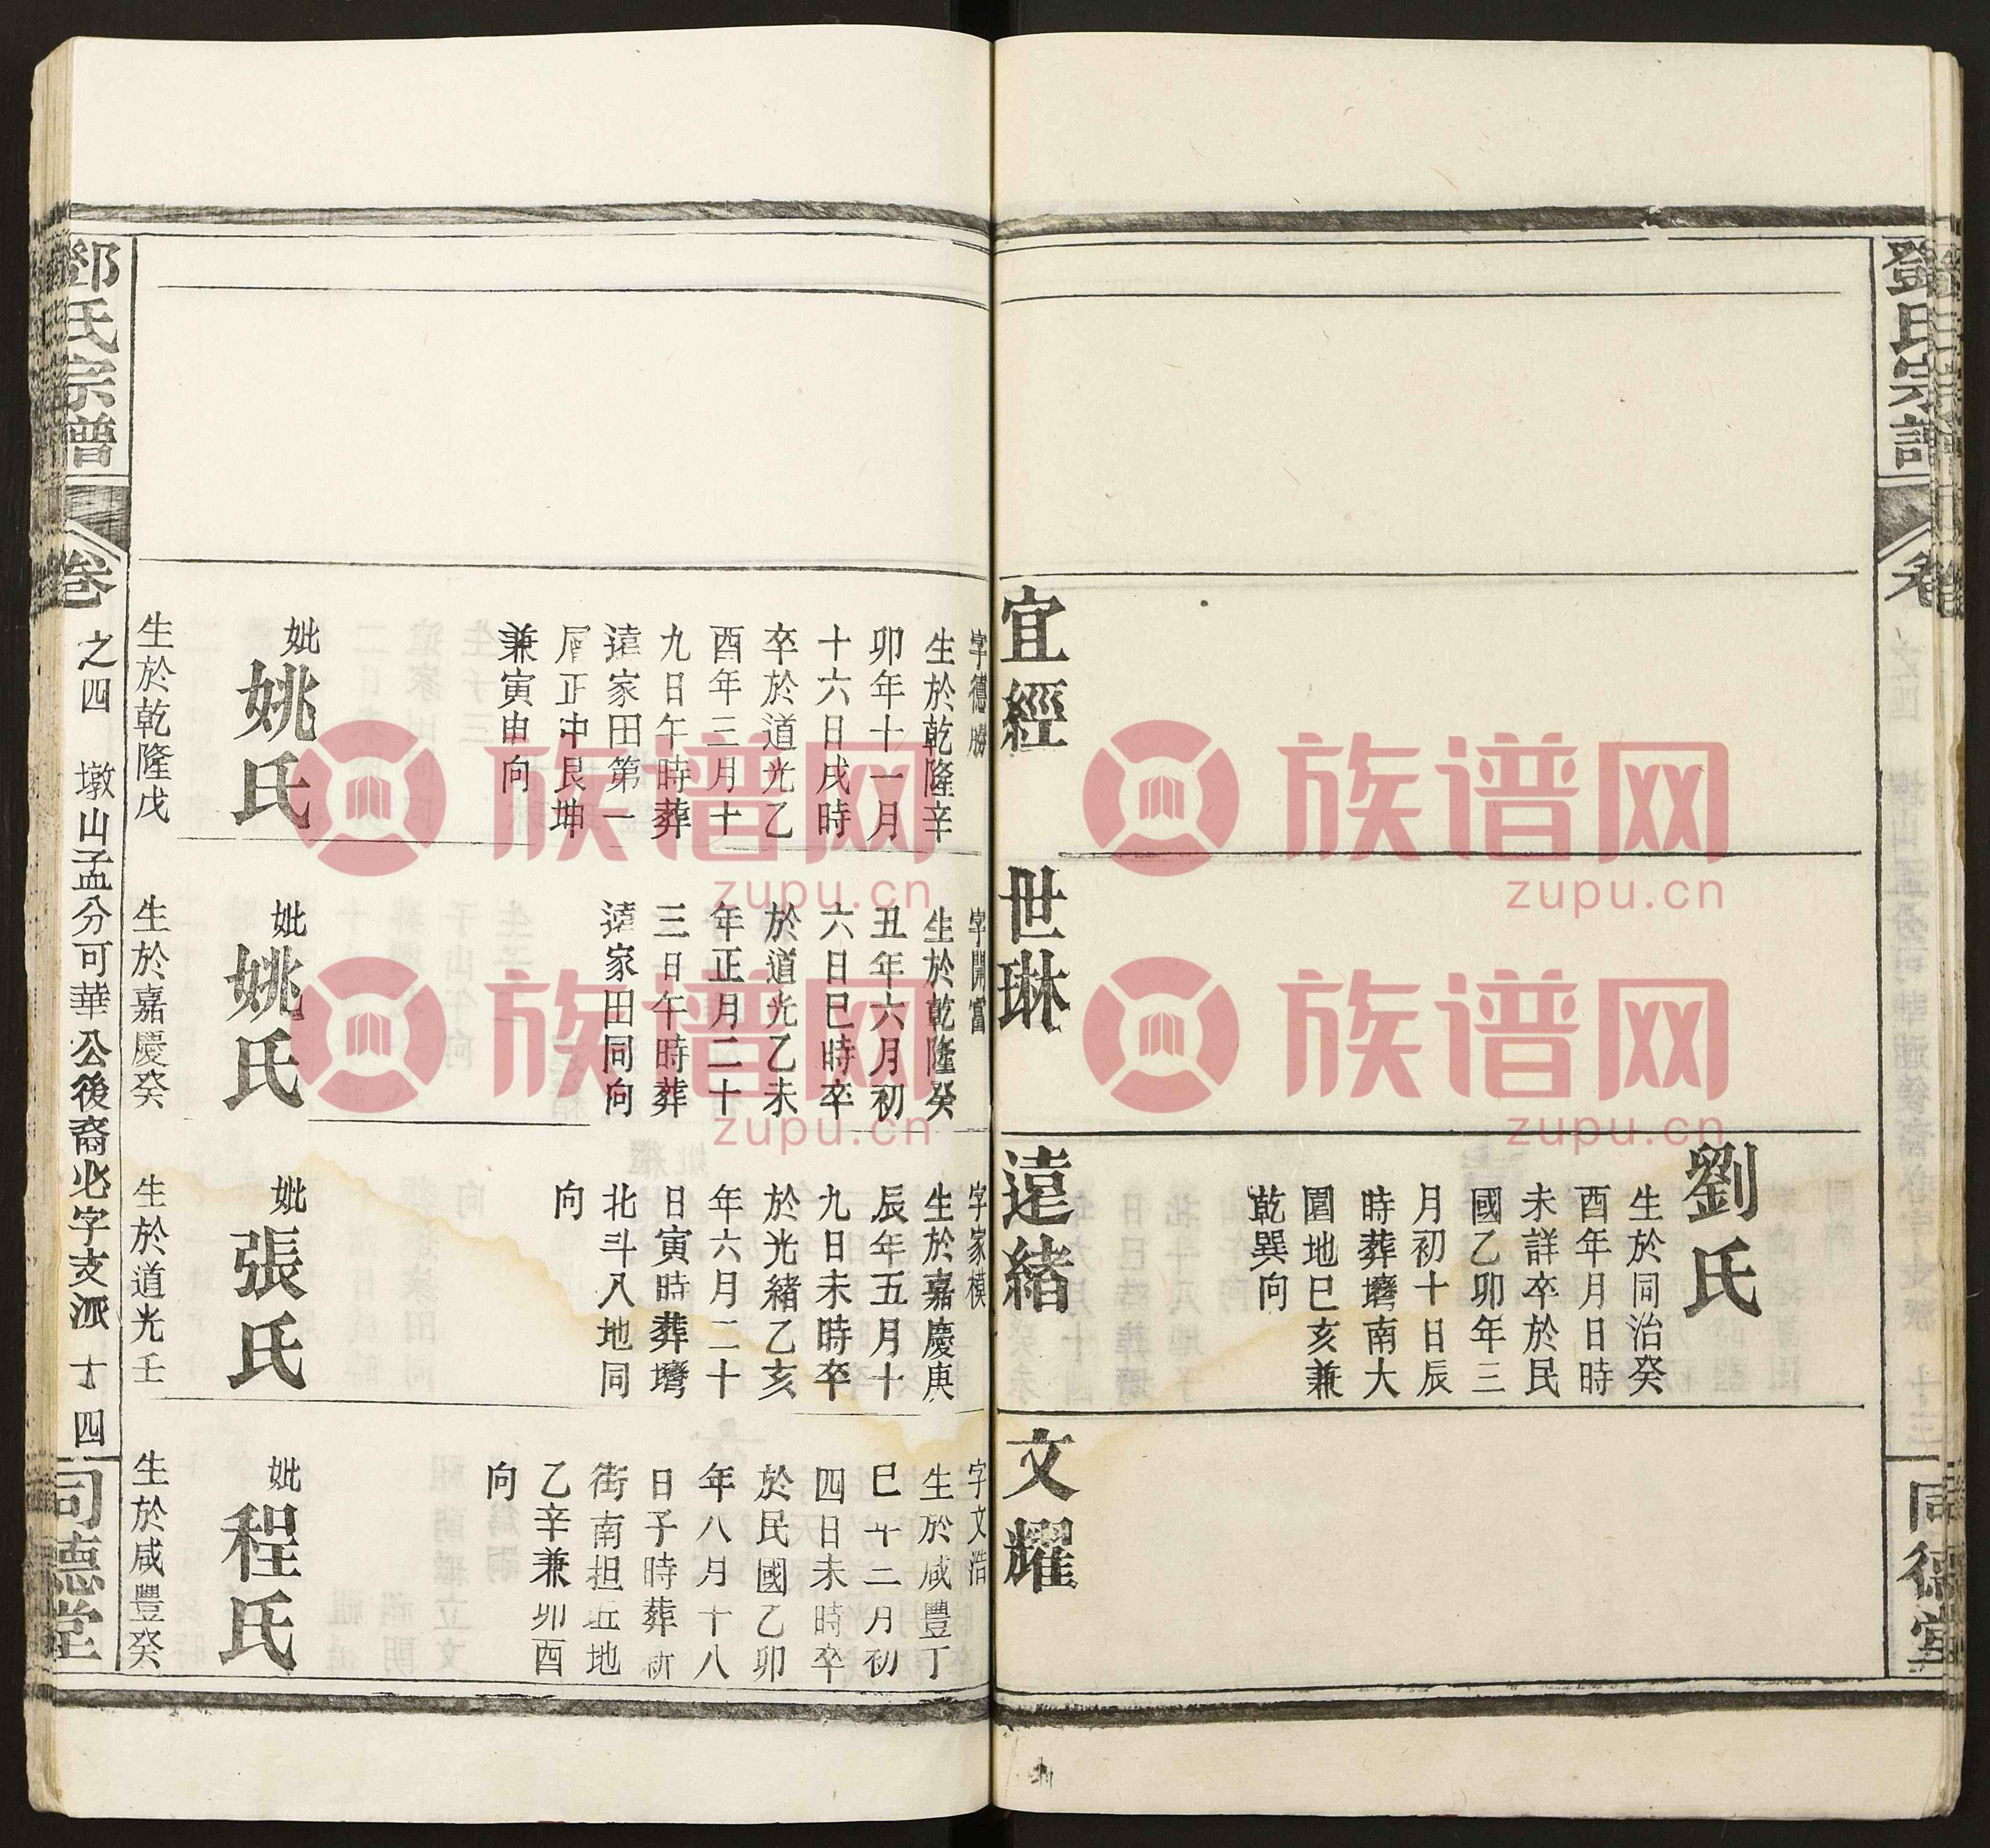 鄧氏宗譜
卷
同德堂
劉氏
生於同治癸
酉年月日時
未詳卒於民
國乙卯年三
月初十日辰
時葬塆南大
圍地巳亥兼
乾巽向
宜經
字德勝
生於乾隆辛
卯年十一月
十六日戌時
卒於道光乙
酉年三月十
九日午時葬
遠家田第一
層正中艮坤
兼寅申向
妣姚氏
生於乾隆戊
世琳
字開富
生於乾隆癸
丑年六月初
六日巳時卒
於道光乙未
年正月二十
三日午時葬
遠家田同向
妣姚氏
生於嘉慶癸
遠緒
字家模
生於嘉慶庚
辰年五月十
九日未時卒
於光緒乙亥
年六月二十
日寅時葬塆
北斗八地同
向
妣張氏
生於道光壬
文耀
字文浩
生於咸豐丁
巳年十二月初
四日未時卒
於民國乙卯
年八月十八
日子時葬新
街南担丘地
乙辛兼卯酉
向
妣程氏
生於咸豐癸
鄧氏宗譜
卷之四 墩山孟分可華公後裔必字支派 十四
同德堂
族谱网
zupu.cn
族谱网
zupu.cn
族谱网
zupu.cn
族谱网
zupu.cn